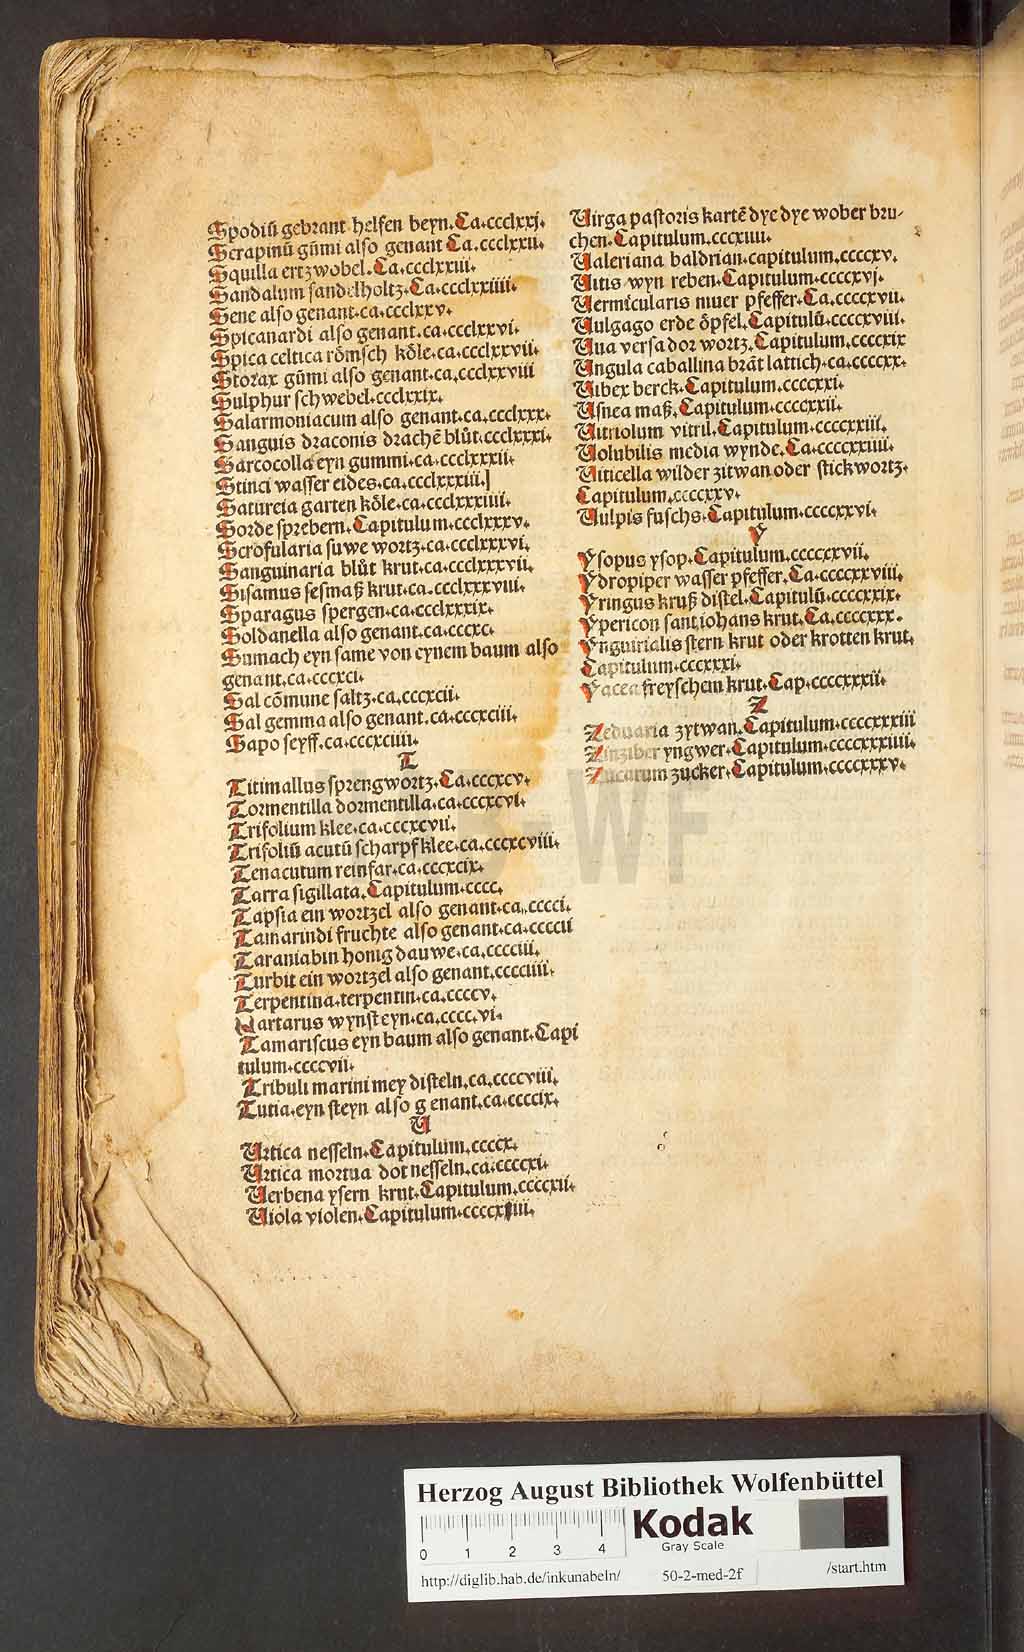 Spodiũ gebrant helfen beyn. Ca. ccclxxj.
Serapinũ gũmi also genant Ca. ccclxxii.
Squilla ertzwobel. Ca. ccclxxiii.
Sandalum sandelholtz. Ca. ccclxxiiii.
Sene also genant. ca. ccclxxv.
Spicanardi also genant. ca. ccclxxvi.
Spica celtica rômsch kôle. ca. ccclxxvii.
Storax gũmi also genant. ca. ccclxxviii
Sulphur schwebel. ccclxxix.
Salarmoniacum also genant. ca. ccclxxx.
Sanguis draconis drachẽ blůt. ccclxxxi.
Sarcocolla eyn gummi. ca. ccclxxxii.
Stinci wasser eides. ca. ccclxxxiii.
Satureia garten kôle. ca. ccclxxxiiii.
Sorde sprebern. Capitulum. ccclxxxv.
Scrofularia suwe wortz. ca. ccclxxxvi.
Sanguinaria blůt krut. ca. ccclxxxvii.
Sisamus sesmaß krut. ca. ccclxxxviii.
Sparagus spergen. ca. ccclxxxix.
Soldanella also genant. ca. cccxc.
Sumach eyn same von eynem baum also
genant. ca. cccxci.
Sal cõmune saltz. ca. cccxcii.
Sal gemma also genant. ca. cccxciii.
Sapo seyff. ca. cccxciiii.
T
Titimallus sprengwortz. Ca. cccxcv.
Tormentilla dormentilla. ca. cccxcvi.
Trifolium klee. ca. cccxcvii.
Trifoliũ acutũ scharpf klee. ca. cccxcviii.
Tenacutum reinfar. ca. cccxcix.
Tarra sigillata. Capitulum. cccc.
Tapsia ein wortzel also genant. ca. cccci.
Tamarindi fruchte also genant. ca. ccccii
Taraniabin honig dauwe. ca. cccciii.
Turbit ein wortzel also genant. cccciiii.
Terpentina. terpentin. ca. ccccv.
Nartarus wynsteyn. ca. cccc. vi.
Tamariscus eyn baum also genant. Capi
tulum. ccccvii.
Tribuli marini mey disteln. ca. ccccviii.
Tutia. eyn steyn also g enant. ca. ccccix.
U
Urtica nesseln. Capitulum. ccccx.
Urtica mortua dot nesseln. ca. ccccxi.
Uerbena ysern krut. Capitulum. ccccxii.
Uiola violen. Capitulum. ccccxiii.
Uirga pastoris kartẽ dye dye wober bru-
chen. Capitulum. cccxiiii.
Ualeriana baldrian. capitulum. ccccxv.
Uitis wyn reben. Capitulum. ccccxvj.
Uermicularis muer pfeffer. Ca. ccccxvii.
Uulgago erde ôpfel. Capitulũ. ccccxviii.
Uua versa dor wortz. Capitulum. ccccxix
Ungula caballina brãt lattich. ca. ccccxx.
Uibex berck. Capitulum. ccccxxi.
Usnea maß. Capitulum. ccccxxii.
Uitriolum vitril. Capitulum. ccccxxiii.
Uolubilis media wynde. Ca. ccccxxiiii.
Uiticella wilder zitwan oder stickwortz.
Capitulum. ccccxxv.
Uulpis fuschs. Capitulum. ccccxxvi.
Y
Ysopus ysop. Capitulum. ccccxxvii.
Ydropiper wasser pfeffer. Ca. ccccxxviii.
Yringus kruß distel. Capitulũ. ccccxxix.
Ypericon sant iohans krut. Ca. ccccxxx.
Ynguirialis stern krut oder krotten krut.
Capitulum. cccxxxi.
Yacea freyschem krut. Cap. ccccxxxii.
Z
Zeduaria zytwan. Capitulum. ccccxxxiii
Zinziber yngwer. Capitulum. ccccxxxiiii.
Zucarum zucker. Capitulum. ccccxxxv.
HAB-WF
Herzog August Bibliothek Wolfenbüttel
0 1 2 3 4
Kodak
Gray Scale
http://diglib.hab.de/inkunabeln/ 50-2-med-2f /start.htm